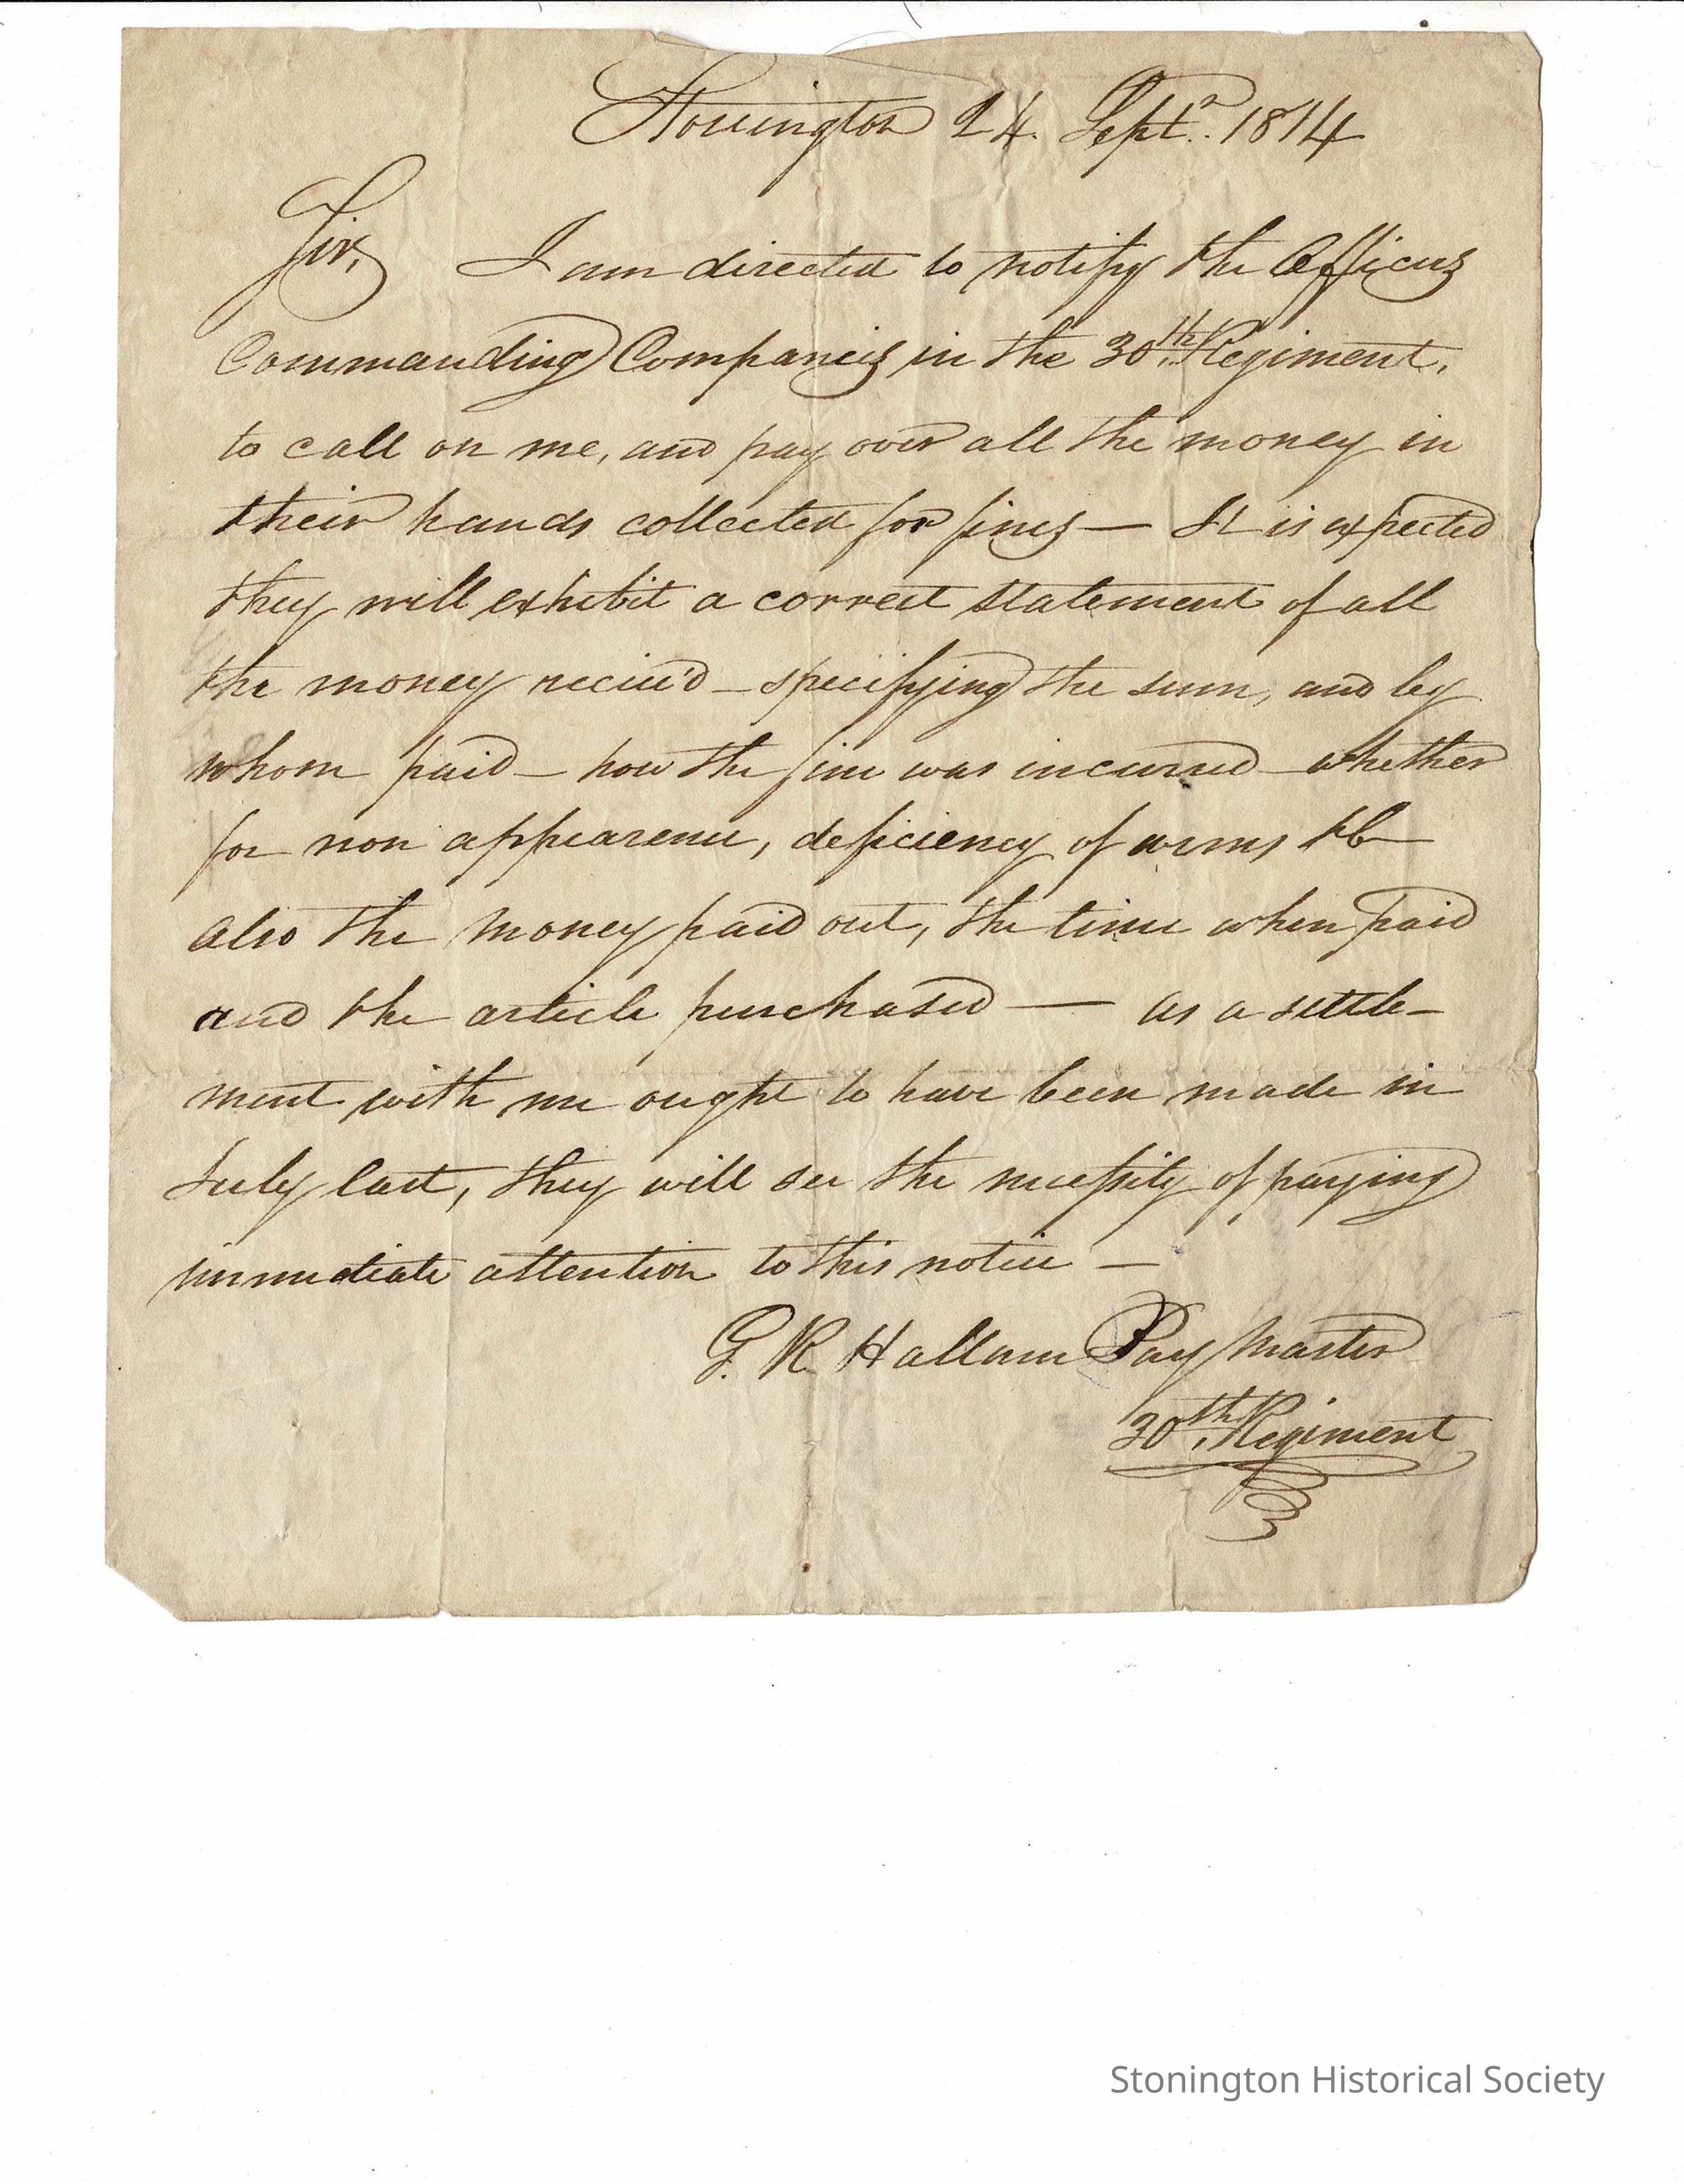 Stonington 24. Septr. 1814
Sir, I am directed to notify the Officers
Commanding Companies in the 30th Regiment,
to call on me, and pay over all the money in
their hands collected for fines — It is expected
they will exhibit a correct statement of all
the money reciev'd — specifying the sum, and by
whom paid — how the fine was incurred — whether
for non appearence, deficiency of arms &c —
also the money paid out, the time when paid
and the article purchased — as a settle-
ment with me ought to have been made in
July last, they will see the necessity of paying
immediate attention to this notice —
G. R. Hallam Pay Master
30th Regiment
Stonington Historical Society